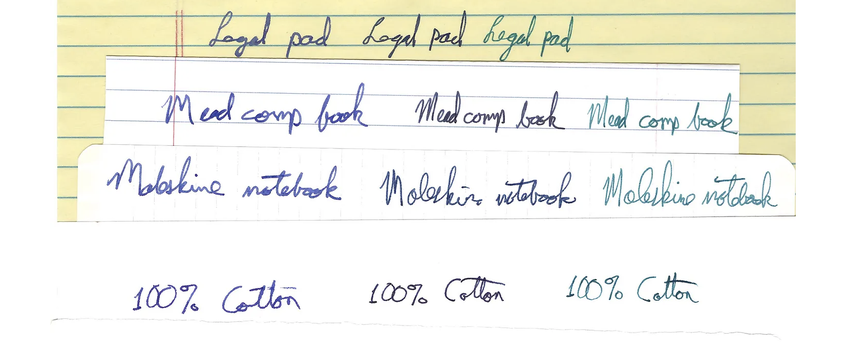 Legal pad Legal pad Legal pad
Mead comp book Mead comp book Mead comp book
Moleskine notebook Moleskine notebook Moleskine notebook
100% Cotton 100% Cotton 100% Cotton